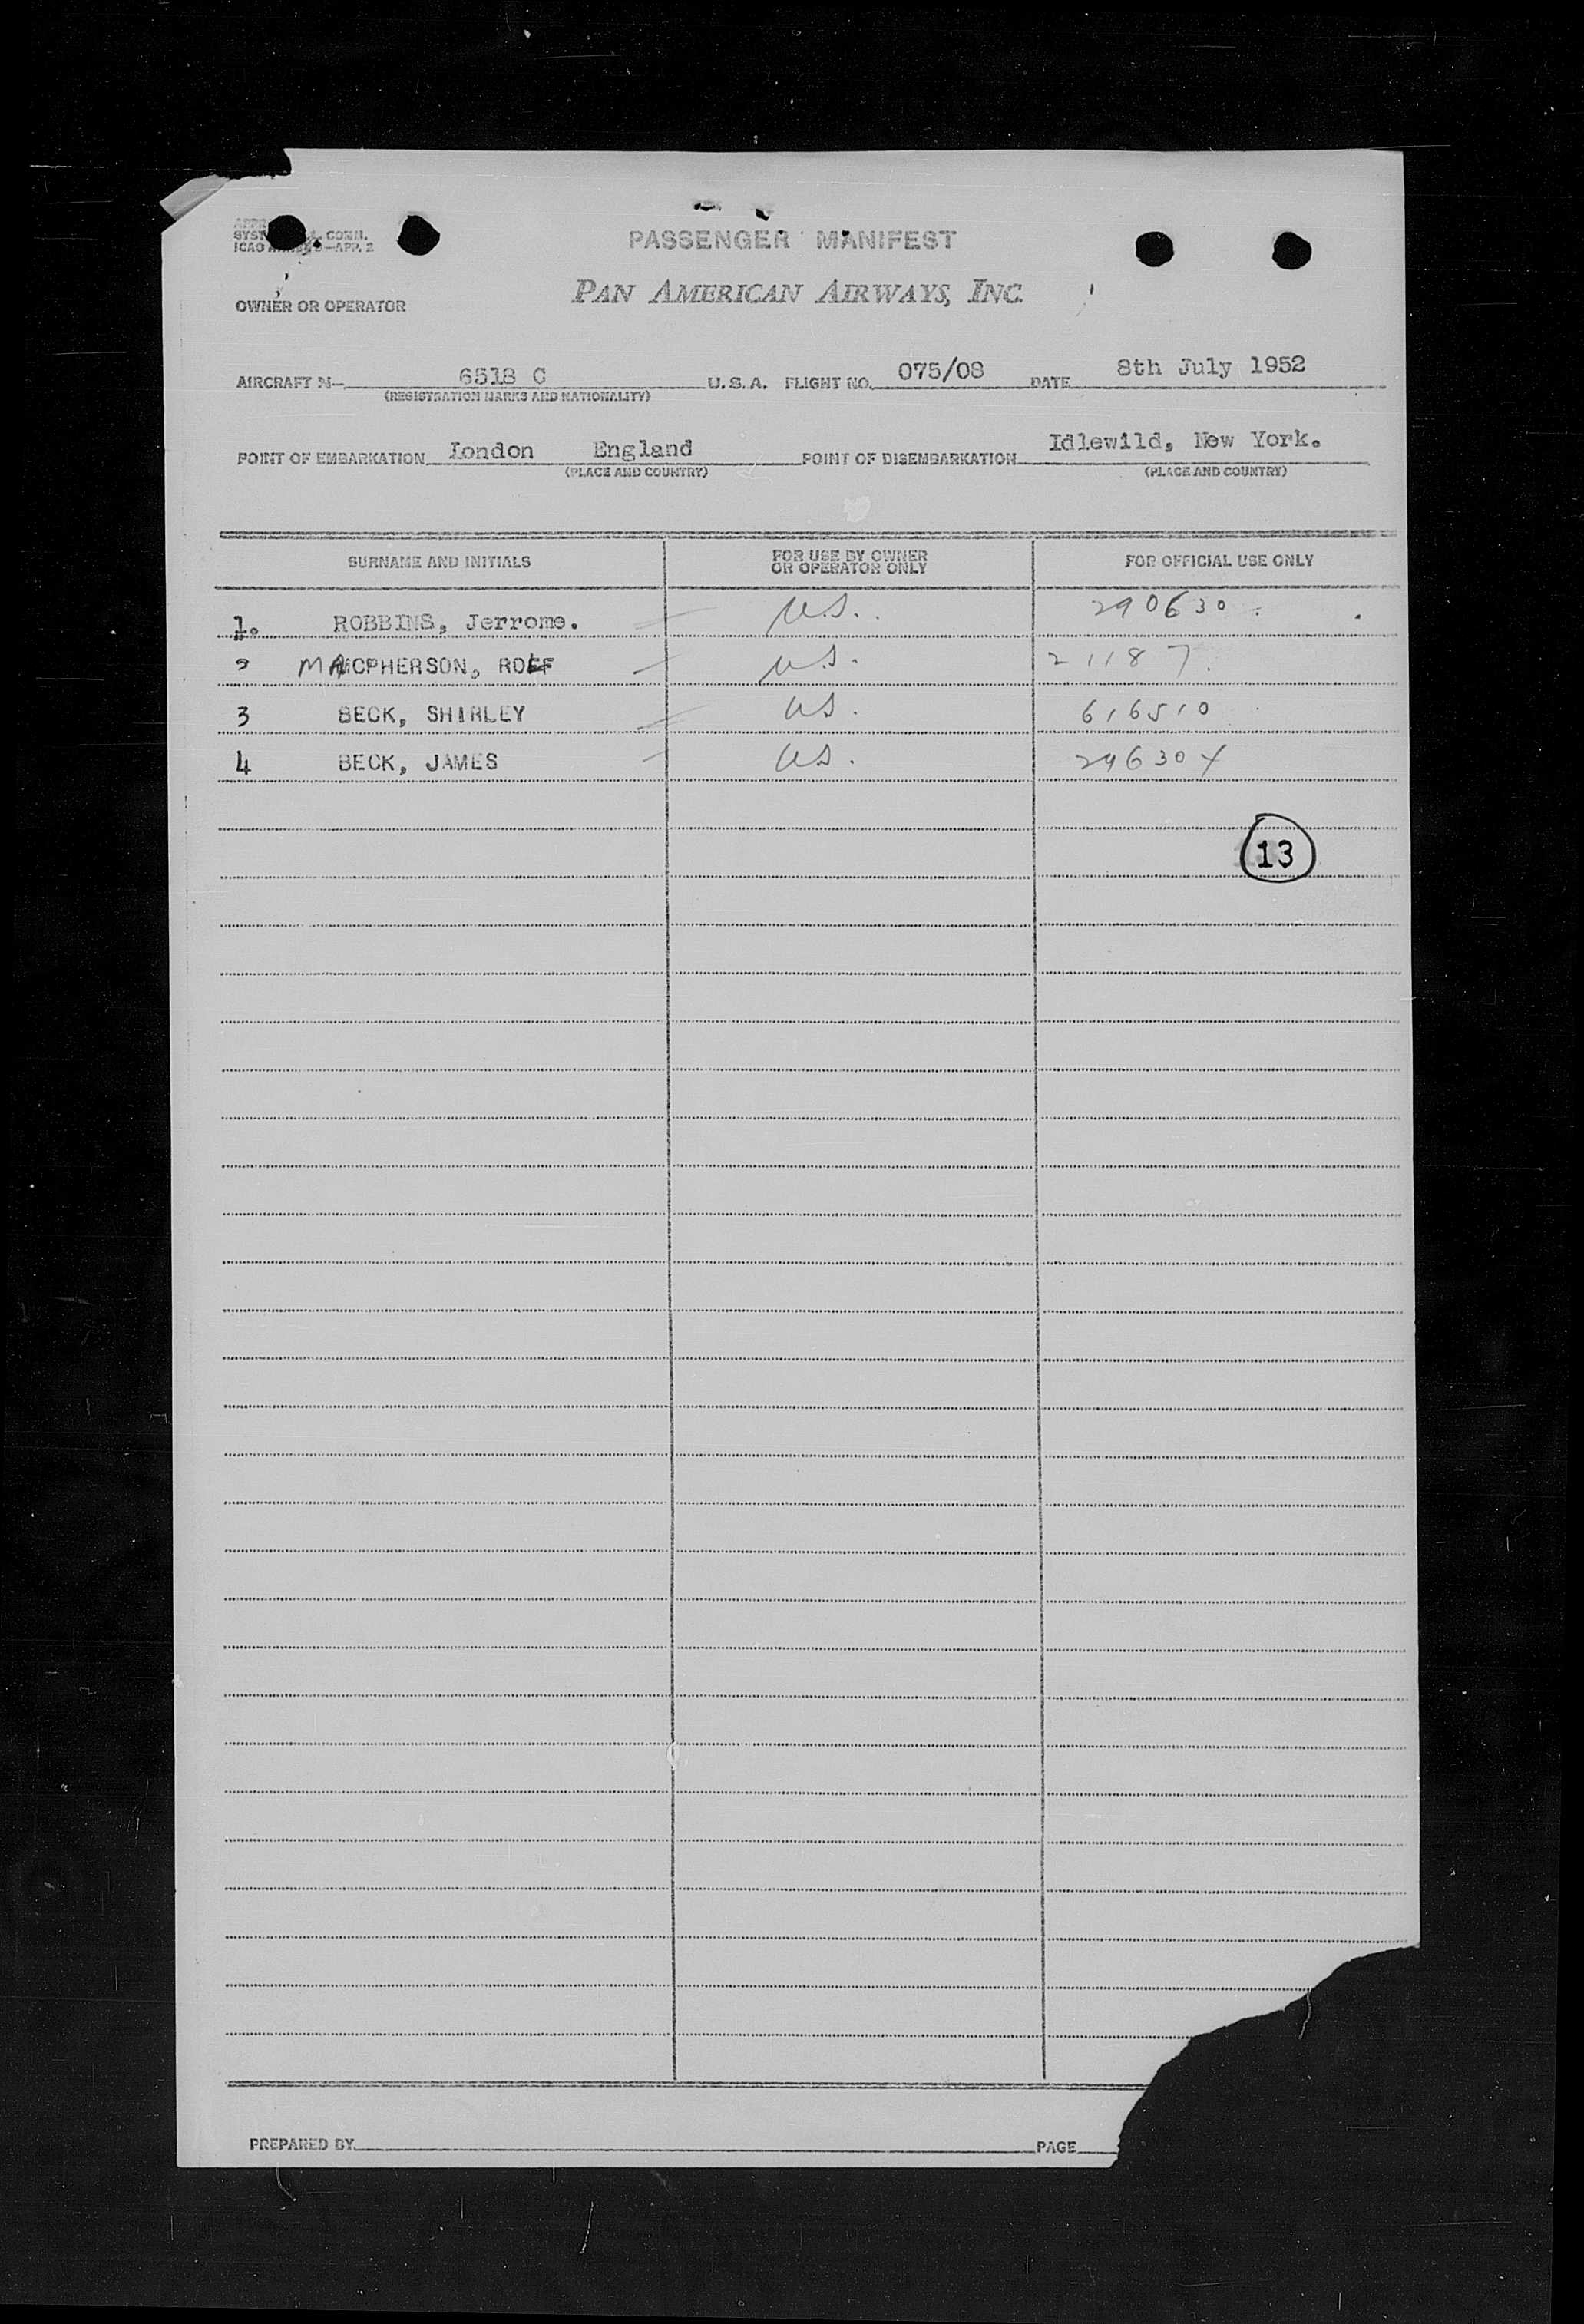 PASSENGER MANIFEST
SYST
CONN.
ICAO
—APP. 2
PAN AMERICAN AIRWAYS, INC.
OWNER OR OPERATOR
AIRCRAFT N— 6518 C U.S.A. FLIGHT NO. 075/08 DATE 8th July 1952
(REGISTRATION MARKS AND NATIONALITY)
POINT OF EMBARKATION London England POINT OF DISEMBARKATION Idlewild, New York.
(PLACE AND COUNTRY) (PLACE AND COUNTRY)
SURNAME AND INITIALS FOR USE BY OWNER OR OPERATOR ONLY FOR OFFICIAL USE ONLY
1. ROBBINS, Jerrome. U.S. 290630
2 MACPHERSON, ROLF U.S. 21187
3 BECK, SHIRLEY US. 616510
4 BECK, JAMES US.
13
PREPARED BY PAGE